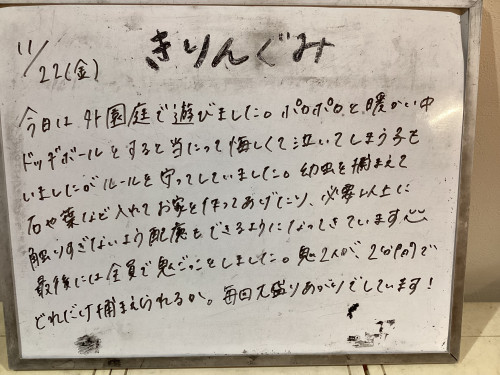 11/22(金)
きりんぐみ
今日は外園庭で遊びました。ポカポカと暖かい中
ドッヂボールをすると当たって悔しくて泣いてしまう子も
いましたがルールを守ってしていました。幼虫を捕まえて
石や葉など入れてお家を作ってあげたり、必要以上に
触りすぎないよう配慮もできるようになってきています
最後には全員で鬼ごっこをしました。鬼2人が、2分間で
どれだけ捕まえられるか。毎回大盛りあがりでしています!